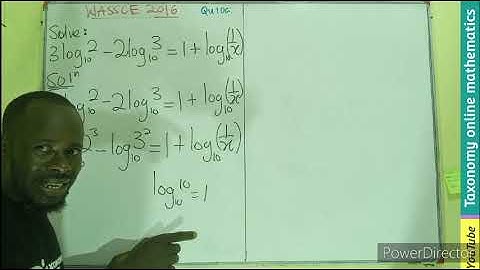 WASSCE 2016 QU10a
Solve:
3log₁₀2 - 2log₁₀3 = 1 + log₁₀(1/x)
Solⁿ
log₁₀2 - 2log₁₀3 = 1 + log₁₀(1/x)
2³ - log₁₀3² = 1 + log₁₀(1/x)
log₁₀10 = 1
Taxonomy online mathematics
YouTube
PowerDirector